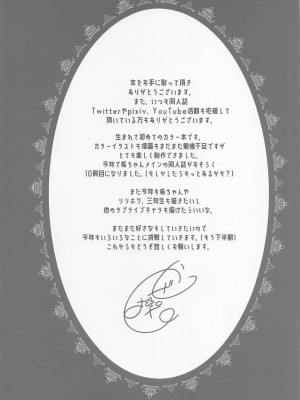 本をお手に取って頂き
ありがとうございます。
また、いつも同人誌
Twitterやpixiv、YouTube活動も応援して
頂いている方もありがとうございます。
生まれて初めてのカラー本です。
カラーイラストも漫画もまだまだ勉強不足ですが
とても楽しく制作できました。
今年で梨ちゃんメインの同人誌がおそらく
10冊目になりました。(もしかしたらもっとあるかも?)
また今年も梨ちゃんや
リリホワ、三年生も描きたいし
他のラブライブキャラも描けたらいいな。
まだまだ好きなもしていきたいので
今年もいろいろなことに挑戦していきます。(もう下半期)
これからもどうぞ宜しくお願いします。